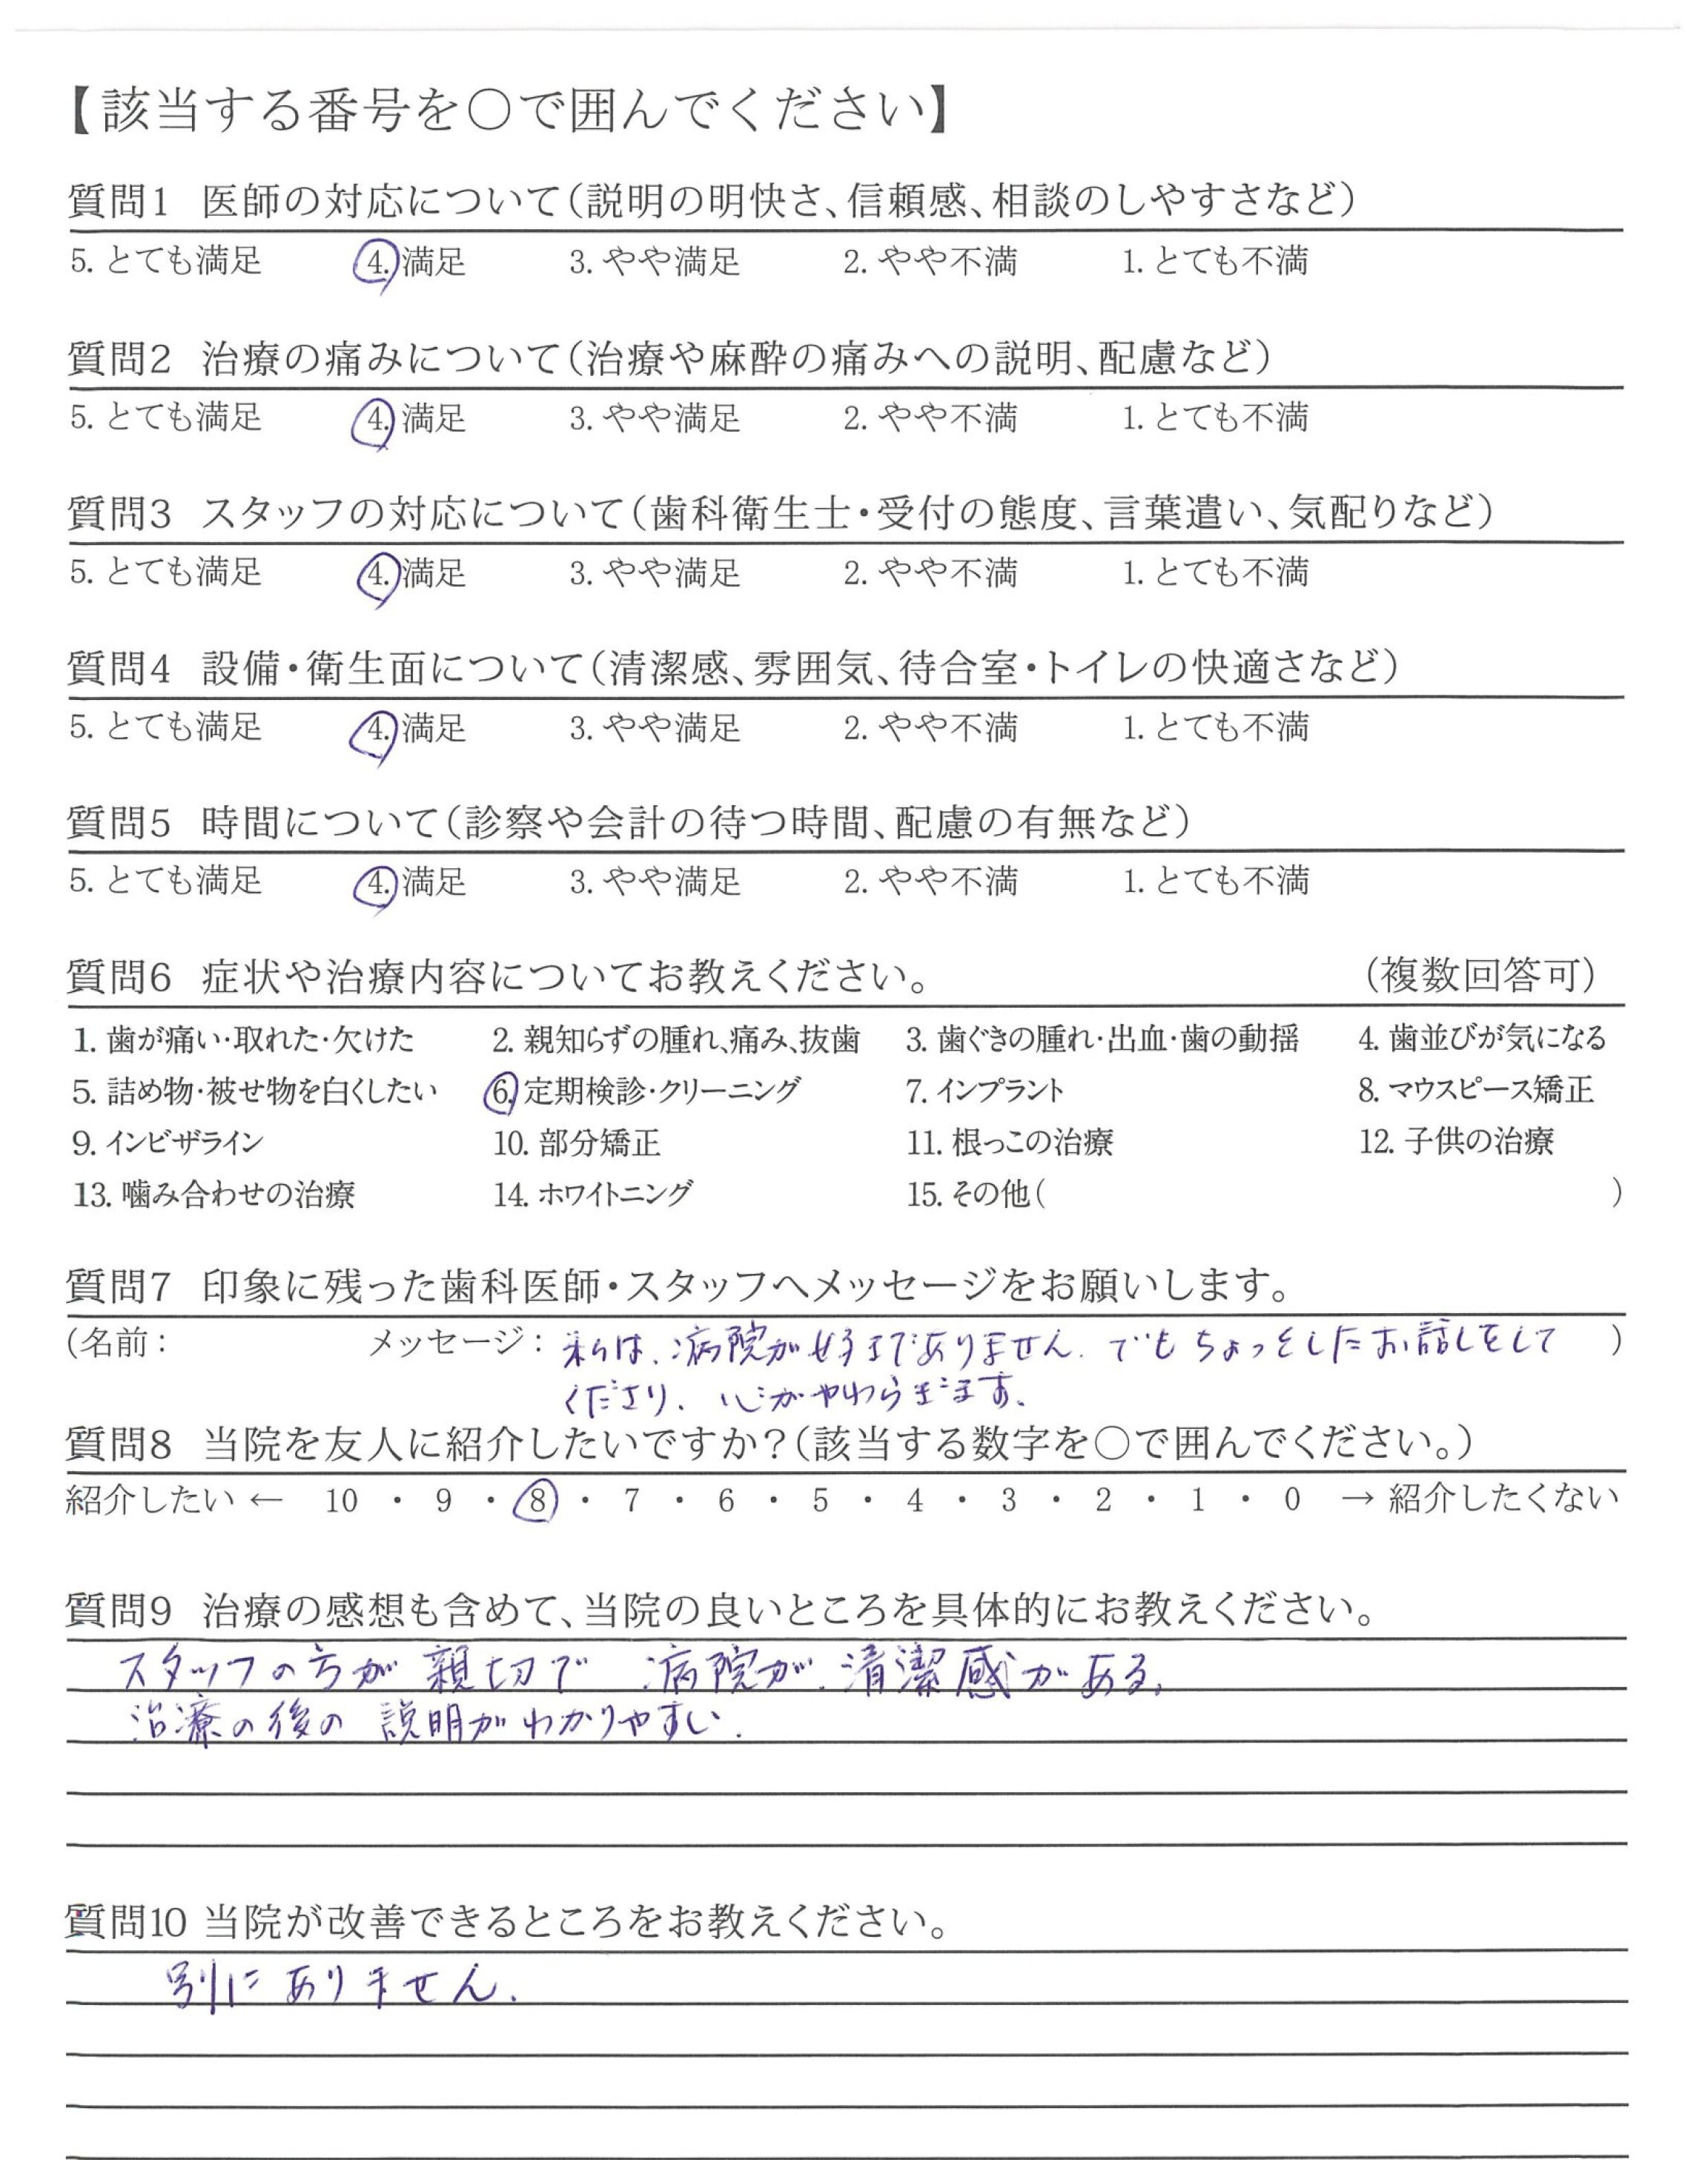 【該当する番号を○で囲んでください】
質問1 医師の対応について(説明の明快さ、信頼感、相談のしやすさなど)
5. とても満足 4. 満足 3. やや満足 2. やや不満 1. とても不満
質問2 治療の痛みについて(治療や麻酔の痛みへの説明、配慮など)
5. とても満足 4. 満足 3. やや満足 2. やや不満 1. とても不満
質問3 スタッフの対応について(歯科衛生士・受付の態度、言葉遣い、気配りなど)
5. とても満足 4. 満足 3. やや満足 2. やや不満 1. とても不満
質問4 設備・衛生面について(清潔感、雰囲気、待合室・トイレの快適さなど)
5. とても満足 4. 満足 3. やや満足 2. やや不満 1. とても不満
質問5 時間について(診察や会計の待つ時間、配慮の有無など)
5. とても満足 4. 満足 3. やや満足 2. やや不満 1. とても不満
質問6 症状や治療内容についてお教えください。 (複数回答可)
1. 歯が痛い・取れた・欠けた 2. 親知らずの腫れ、痛み、抜歯 3. 歯ぐきの腫れ・出血・歯の動揺 4. 歯並びが気になる
5. 詰め物・被せ物を白くしたい 6. 定期検診・クリーニング 7. インプラント 8. マウスピース矯正
9. インビザライン 10. 部分矯正 11. 根っこの治療 12. 子供の治療
13. 噛み合わせの治療 14. ホワイトニング 15. その他( )
質問7 印象に残った歯科医師・スタッフへメッセージをお願いします。
(名前: メッセージ: 私は、病院が好きでありません。でもちょっとしたお話しをして )
くださり、心がやわらぎます。
質問8 当院を友人に紹介したいですか?(該当する数字を○で囲んでください。)
紹介したい ← 10 ・ 9 ・ 8 ・ 7 ・ 6 ・ 5 ・ 4 ・ 3 ・ 2 ・ 1 ・ 0 → 紹介したくない
質問9 治療の感想も含めて、当院の良いところを具体的にお教えください。
スタッフの方が親切で 病院が、清潔感がある。
治療の後の 説明がわかりやすい。
質問10 当院が改善できるところをお教えください。
別にありません。